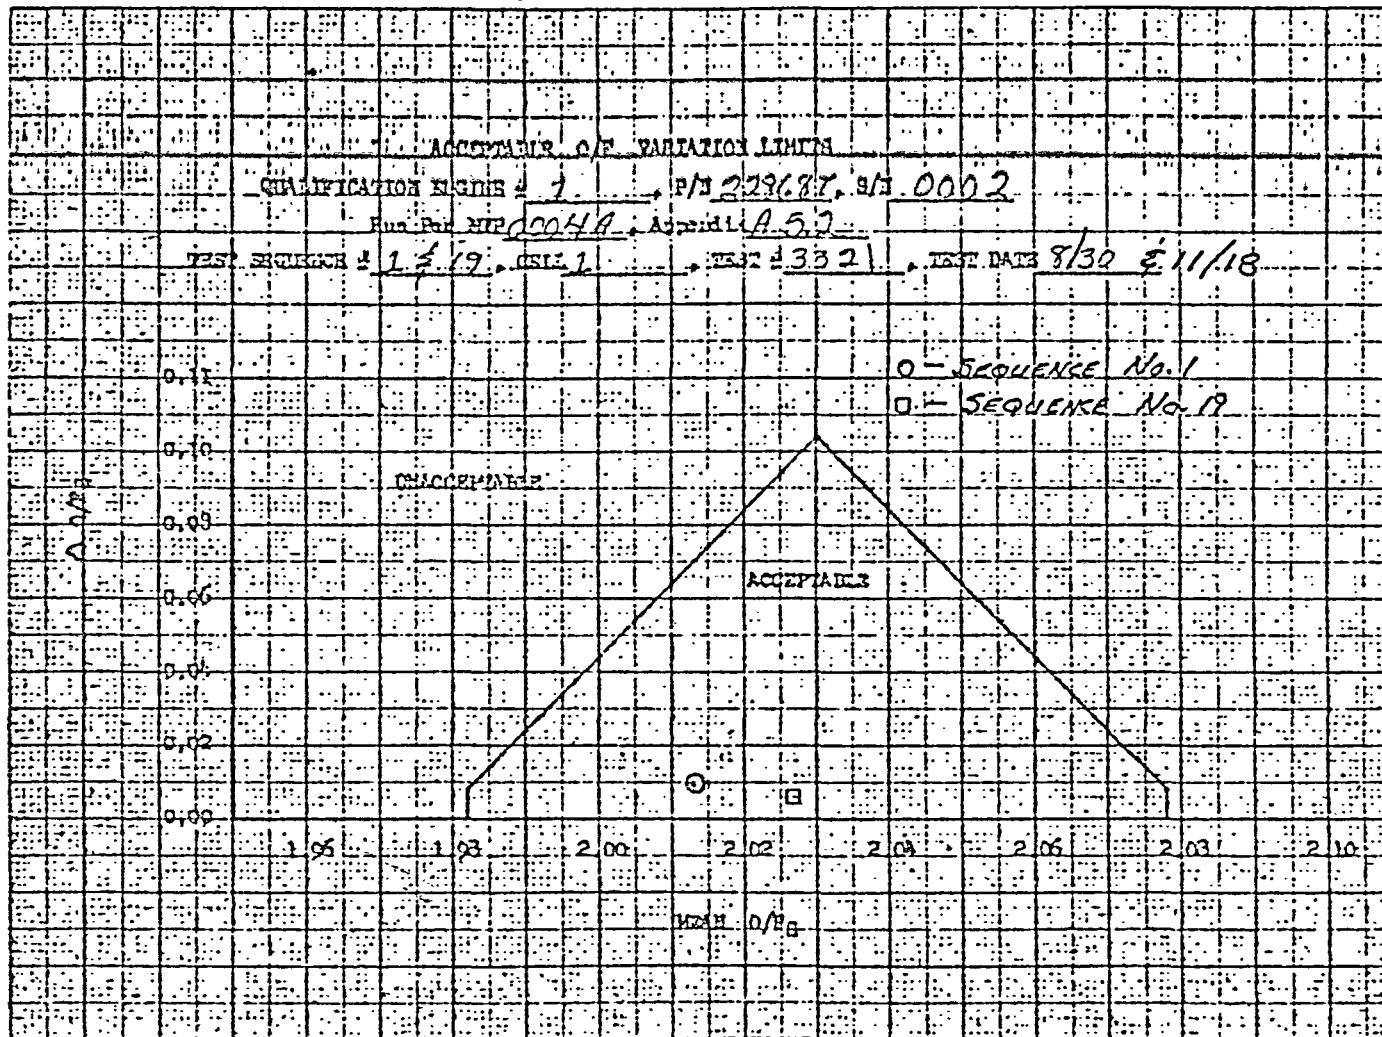 ACCEPTABLE O/F VARIATION LIMITS
QUALIFICATION ENGINE # 1, P/N 229687, S/N 0002
Run Per MTP 0004A, Appendix A 5.2
TEST SEQUENCE # 1 & 19, CELL 1, TEST # 3321, TEST DATE 8/30 & 11/18
O - SEQUENCE No. 1
□ - SEQUENCE No. 19
0.11
0.10
UNACCEPTABLE
0.08
Δ O/F
ACCEPTABLE
0.06
0.04
0.02
0.00
1.96 1.98 2.00 2.02 2.04 2.06 2.08 2.10
MEAN O/F